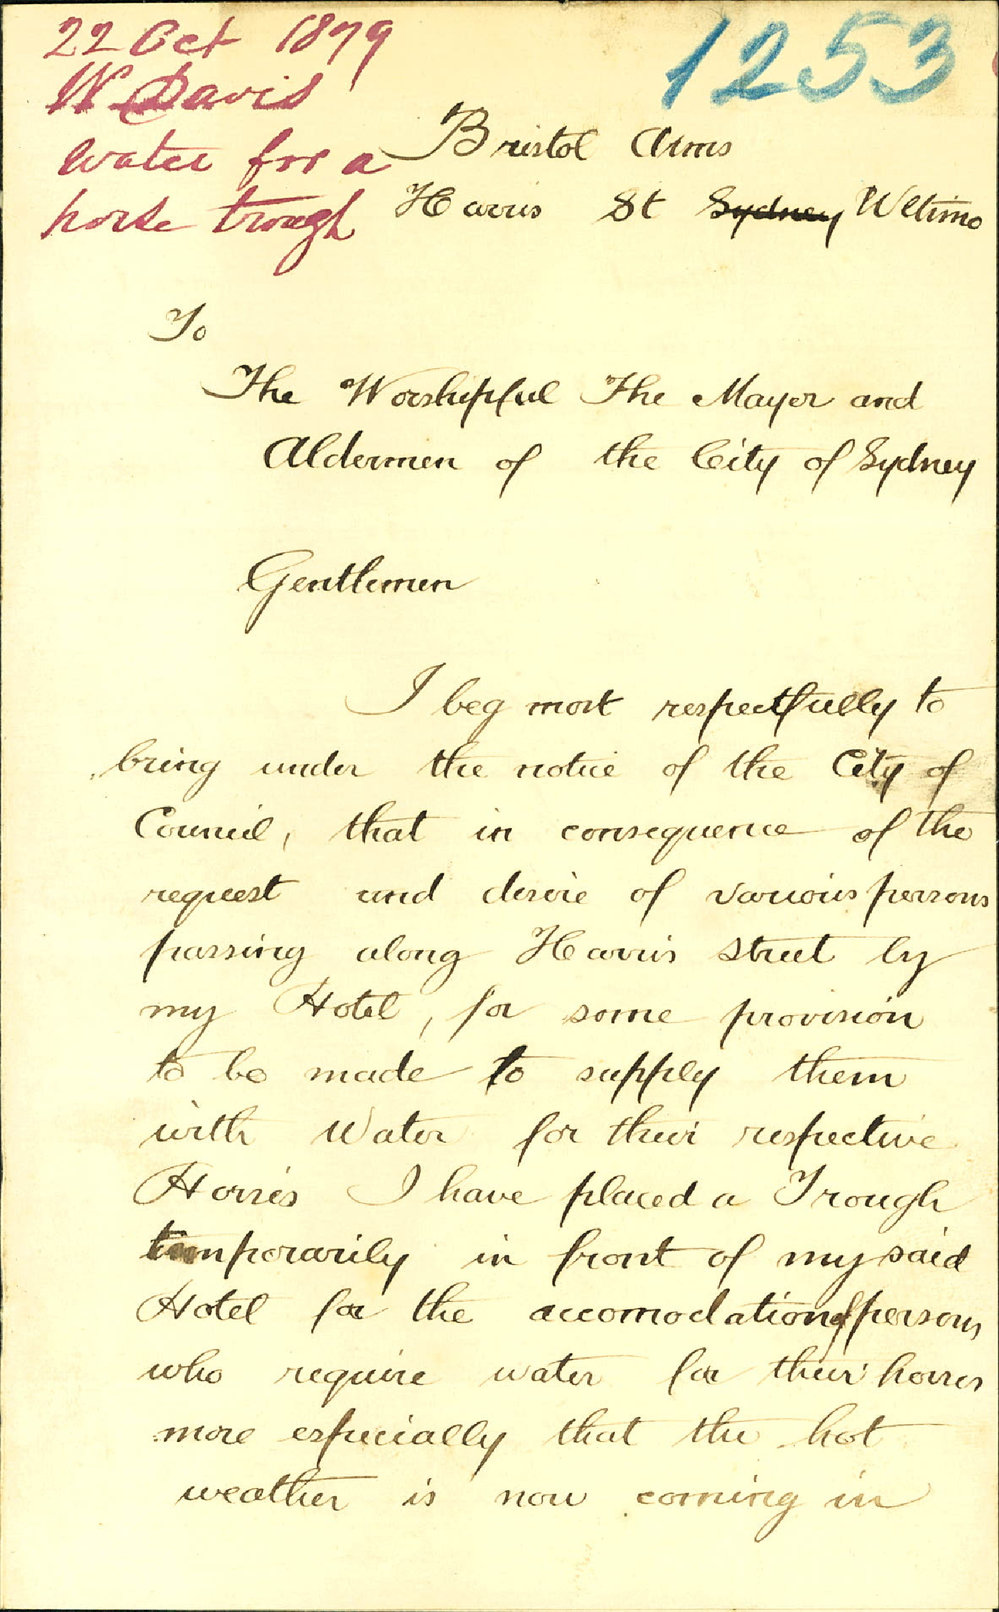 22 Oct 1879
W Davis
Water for a
horse trough
1253
Bristol Arms
Harris St Sydney Ultimo
To
The Worshipful The Mayor and
Aldermen of the City of Sydney
Gentlemen
I beg most respectfully to
bring under the notice of the City of
Council, that in consequence of the
request and desire of various persons
passing along Harris Street by
my Hotel, for some provision
to be made to supply them
with Water for their respective
Horses I have placed a Trough
temporarily in front of my said
Hotel for the accomodation of persons
who require water for their horses
more especially that the hot
weather is now coming in